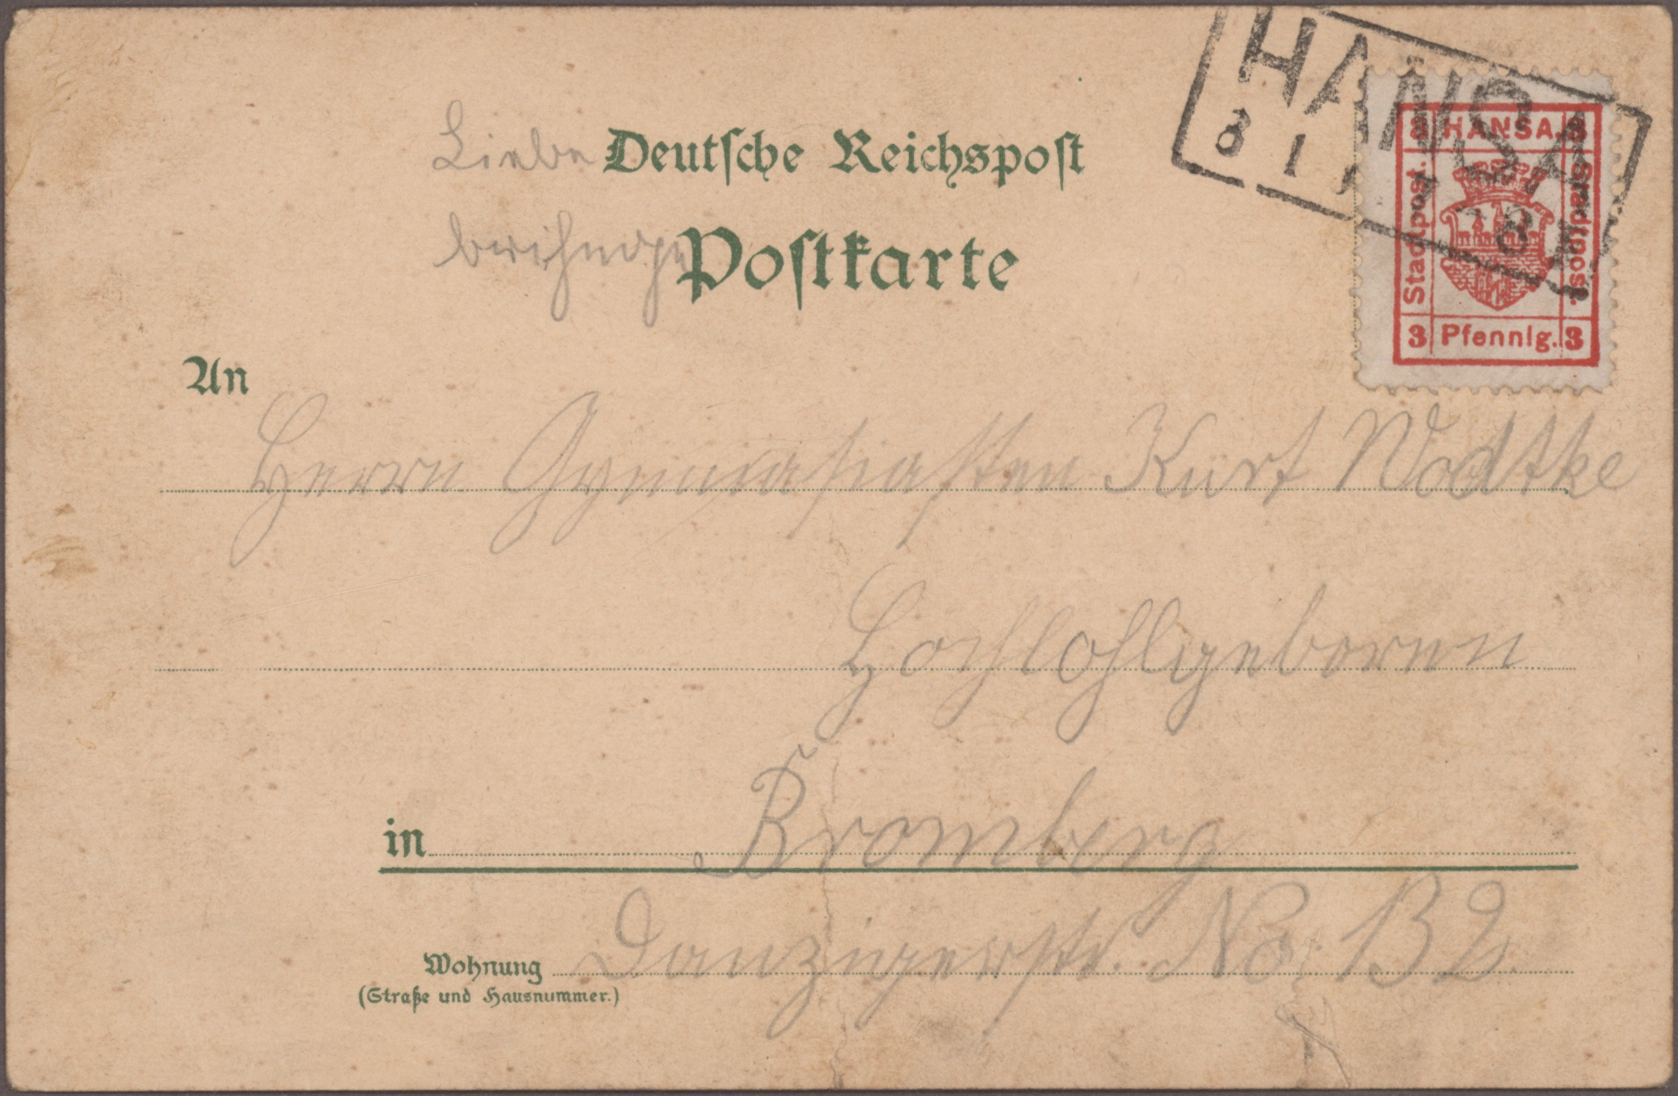 HANSA
8 1
8
3 HANSA. 3
Stadtpost.
Stadtpost.
3 Pfennig. 3
Liebe Deutsche Reichspost
Postkarte
An
Herrn Gymnasiasten Kurt Wodtke
Hochlohlgeboren
in Bromberg
Wohnung Danzigerstr. No. 132.
(Straße und Hausnummer.)